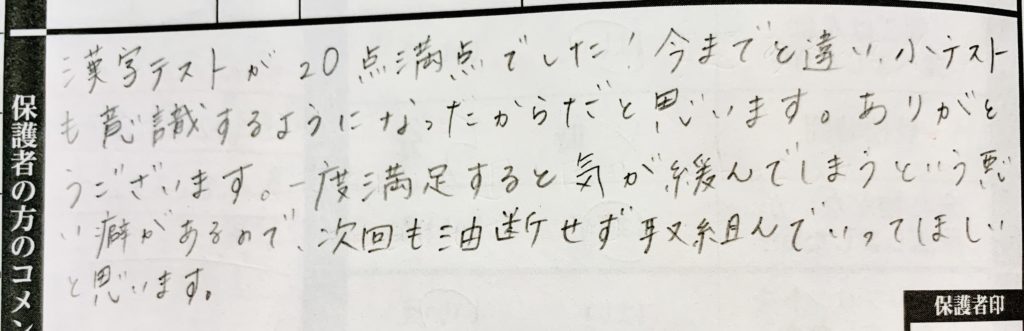 保護者の方のコメン
漢字テストが20点満点でした！今までと違い、小テスト
も意識するようになったからだと思います。ありがと
うございます。一度満足すると気が緩んでしまうという悪
い癖があるので、次回も油断せず取組んでいってほしい
と思います。
保護者印